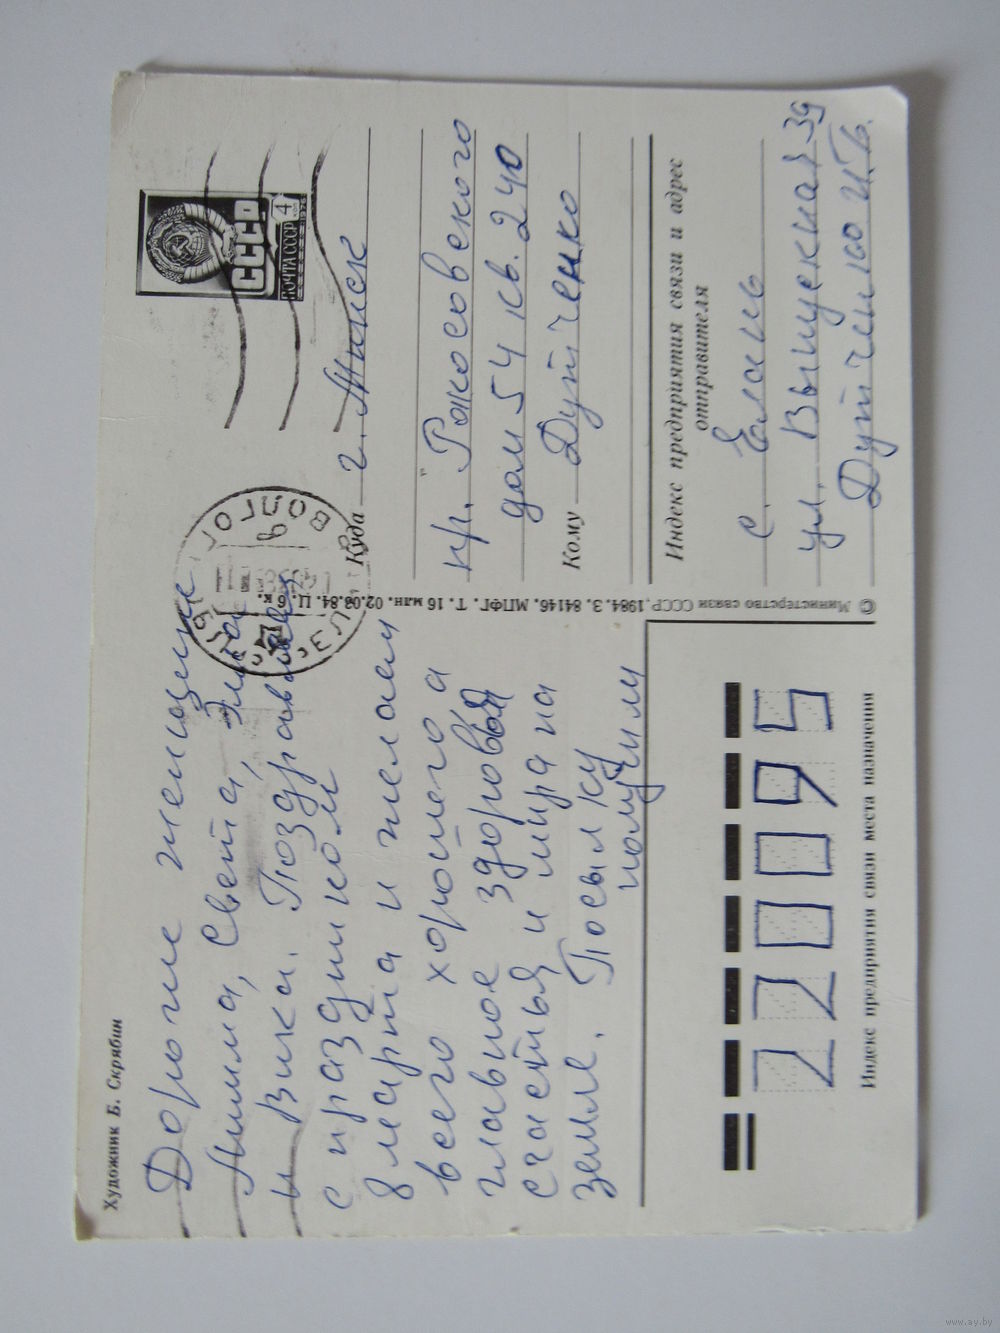 Художник Б. Скрябин
Дорогие женщины
Лимма, Света, Элла
и Вика. Поздравляем
с праздником
8 марта и желаем
всего хорошего а
главное здоровья
счастья и мира на
земле. Посылку
получили
ПОЧТА СССР
4
1976
СССР
Куда г. Минск
пр. Рокосовского
дом 54 кв. 240
Кому Дутченко
Индекс предприятия связи и адрес
отправителя
с. Елань
ул. Выпускная 39
Дутченко
© Министерство связи СССР, 1984. З. 84146. МПФГ. Т. 16 млн. 02.08.84. Ц. 6 к.
220095
Индекс предприятия связи места назначения
www.ay.by